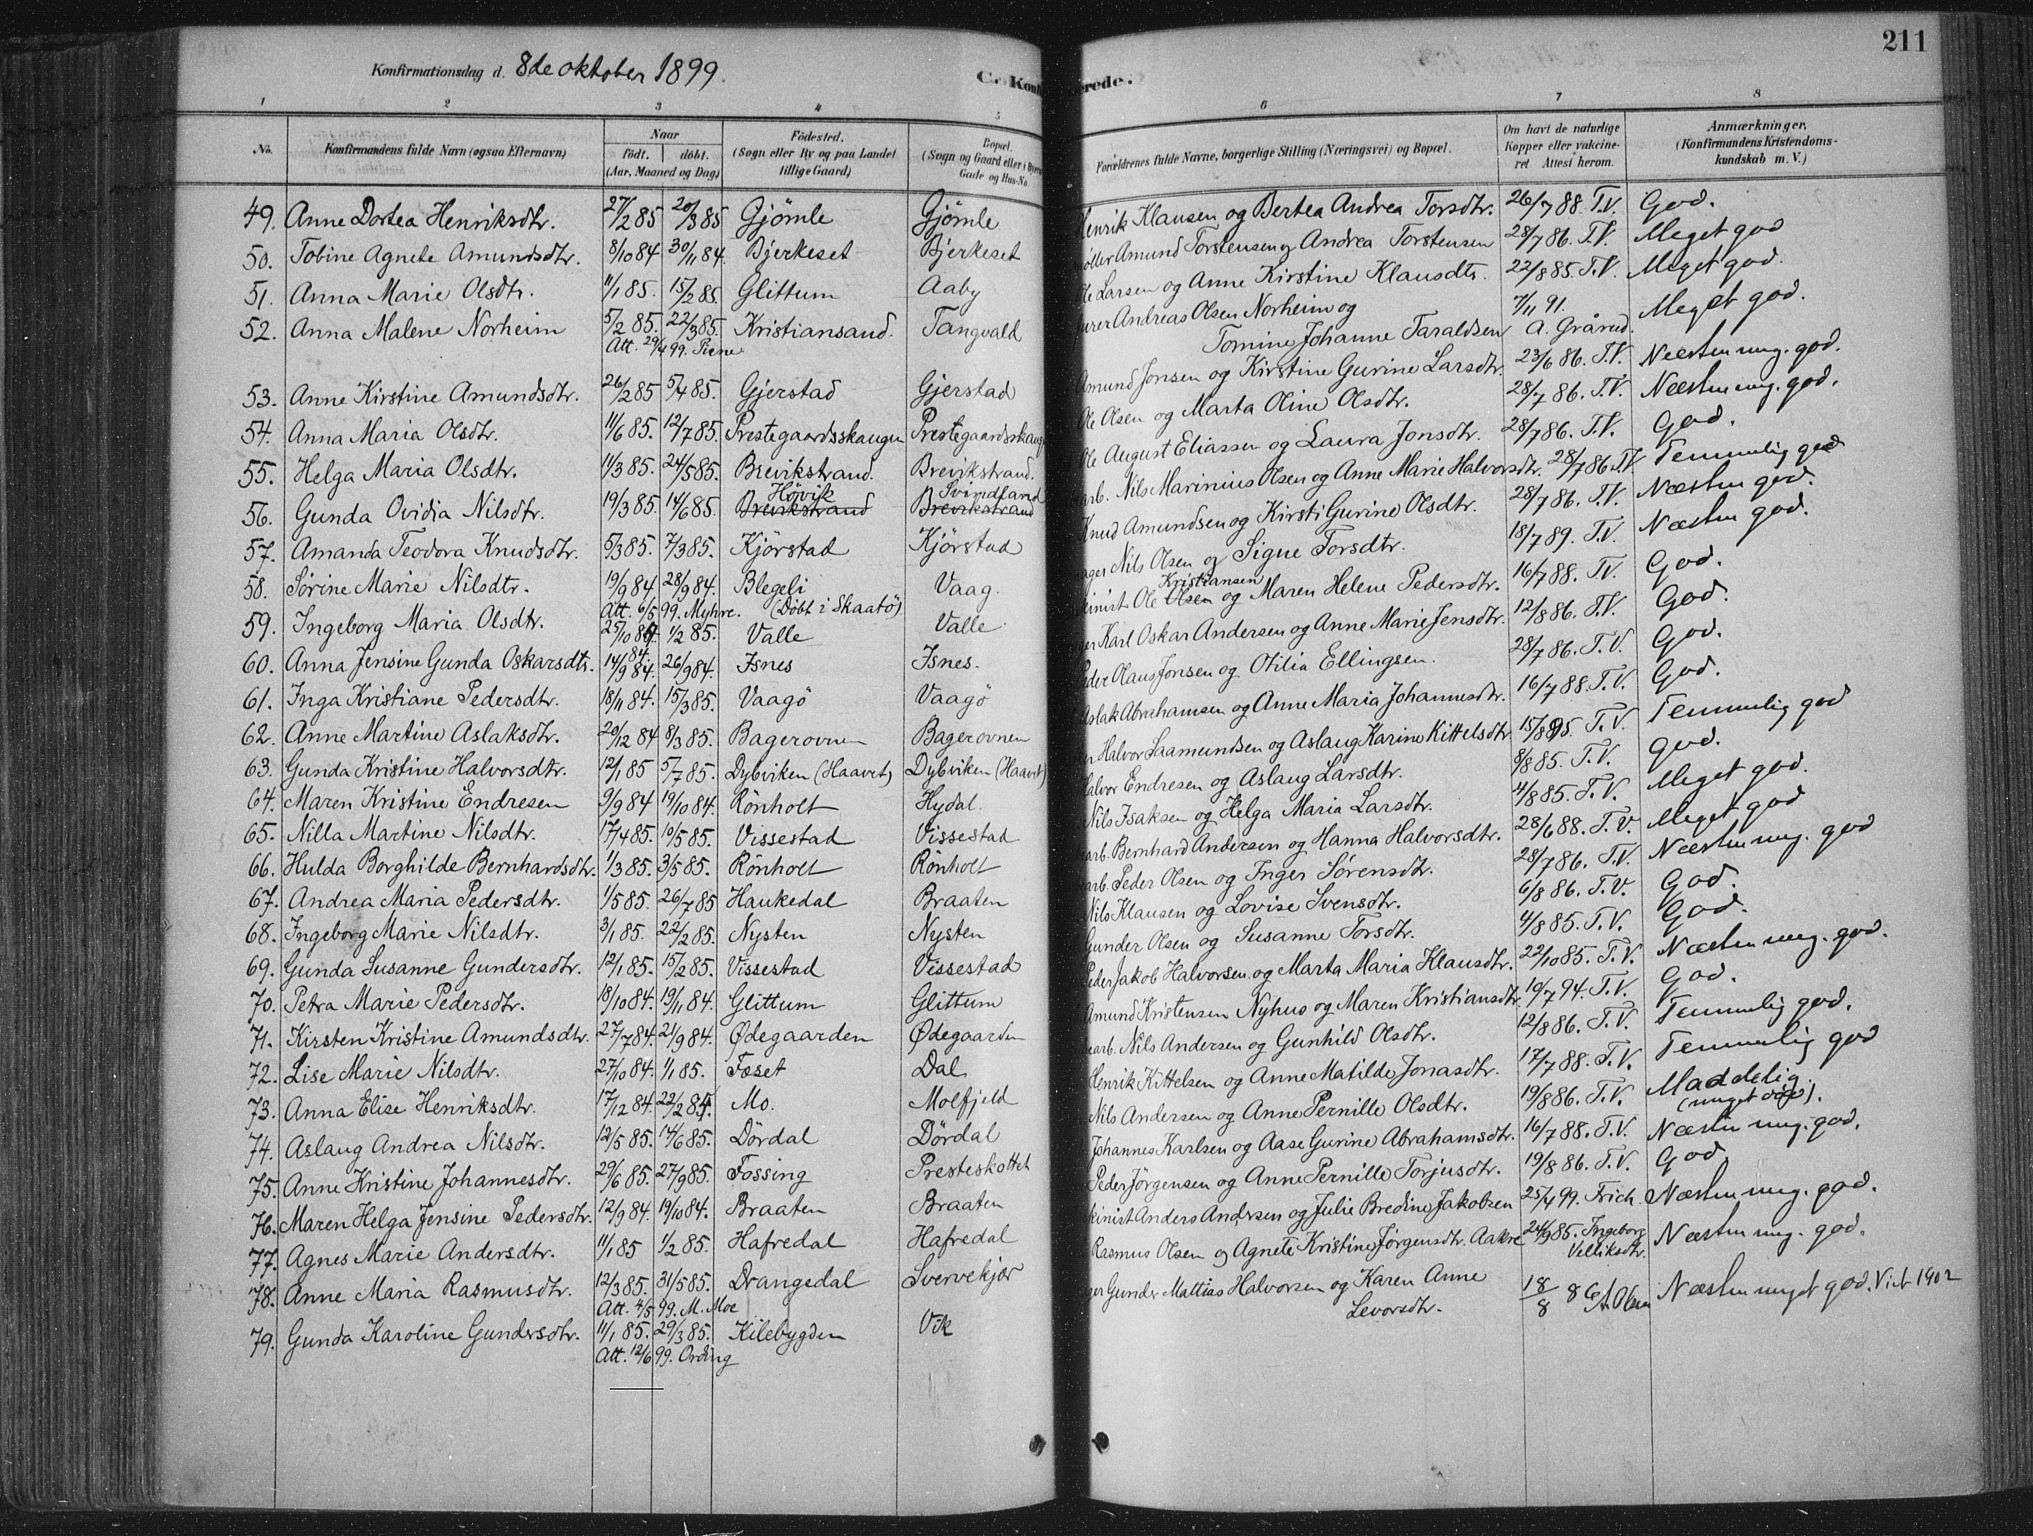 211
Konfirmationsdag d. 8de oktober 1899.
C. Konfirmerede.
1 2 3 4 5 6 7 8
No. Konfirmandens fulde Navn (ogsaa Efternavn) Naar født. døbt. (Aar, Maaned og Dag) Fødested. (Sogn eller By og paa Landet tillige Gaard) Bopæl. (Sogn og Gaard eller i Gade og Hus-No. Forældrenes fulde Navne, borgerlige Stilling (Næringsvei) og Bopæl. Om havt de naturlige Kopper eller vakcineret Attest herom. Anmærkninger. (Konfirmandens Kristendomskundskab m. V.)
49. Anne Dortea Henriksdtr. 27/2 85 20/3 85 Gjömle Gjömle Henrik Klausen og Bertea Andrea Torsdtr. 26/7 88. T.V. God.
50. Tobine Agnete Amundsdtr. 8/10 84 30/11 84. Bjerkeset Bjerkeset Amund Torstensen og Andrea Torstensen 28/7 86. T.V. Meget god
51. Anna Marie Olsdtr. 11/1 85. 15/2 85. Glittum Aaby Ole Larsen og Anne Kirstine Klausdtr. 22/8 85. T.V. Meget god.
52. Anna Malene Norheim 5/2 85. 22/3 85. Kristiansand. Tangvald Andreas Olsen Norheim og 7/11 91. Meget god.
Att. 29/4 99. Tomine Johanne Taraldsen A. Grårud.
53. Anne Kirstine Amundsdtr. 26/2 85 5/4 85. Gjerstad Gjerstad Amund Jonsen og Kirstine Gurine Larsdtr. 23/6 86. T.V. Næsten mg. god.
54. Anna Maria Olsdtr. 11/6 85. 12/7 85. Prestegaardsskaugen Prestegaardsskaug Ole Olsen og Marta Oline Olsdtr. 28/7 86. T.V. Næsten mg. god.
55. Helga Maria Olsdtr. 11/3 85. 24/5 85. Brevikstrand. Brevikstrand. Ole August Eliassen og Laura Jonsdtr. 28/7 86. T.V. God.
Hövik Svindland
56. Gunda Ovidia Nilsdtr. 19/3 85. 14/6 85. Brevikstrand Brevikstrand arb. Nils Marinius Olsen og Anne Marie Halvorsdtr. 28/7 86. T.V. Temmelig god
57. Amanda Teodora Knudsdtr. 5/3 85. 7/3 85. Kjörstad Kjörstad Knud Amundsen og Kirsti Gurine Olsdtr. 28/7 86. T.V. Næsten god.
58. Sörine Marie Nilsdtr. 19/9 84 28/9 84. Blegeli Vaag. Nils Olsen og Signe Torsdtr. 18/7 89. T.V. Næsten god.
Att. 6/5 99. Myhre. (Döbt i Skaatö) Kristiansen
59. Ingeborg Maria Olsdtr. 25/10 84. 1/2 85. Valle Valle Ole Olsen og Maren Helene Pedersdtr. 16/7 88. T.V. God.
84.
60. Anna Jensine Gunda Oskarsdtr. 14/9 84. 26/9 84. Isnes Isnes. Karl Oskar Andersen og Anne Marie Jensdtr. 12/8 86. T.V. God.
61. Inga Kristiane Pedersdtr. 18/11 84. 15/3 85. Vaagö Vaagö Peder Olaus Jonsen og Otilia Ellingsen. 28/7 86. T.V. God.
62. Anne Martine Aslaksdtr. 20/12 84 8/3 85. Bagerovnen Bagerovnen Aslak Abrahamsen og Anne Maria Johannesdtr. 16/7 88. T.V. God.
63. Gunda Kristine Halvorsdtr. 12/1 85 5/7 85. Dybviken (Haavet) Dybviken (Haavet) Halvor Saamundsen og Aslaug Karine Kittelsdtr 15/8 95. T.V. Temmelig god
64. Maren Kristine Endresen 9/9 84 19/10 84. Rönholt Hydal. Halvor Endresen og Aslaug Larsdtr. 8/8 85. T.V. god.
65. Nilla Martine Nilsdtr. 17/4 85. 10/5 85. Vissestad Vissestad Nils Isaksen og Helga Maria Larsdtr. 4/8 85. T.V. Meget god.
66. Hulda Borghilde Bernhardsdtr. 1/3 85. 3/5 85. Rönholt Rönholt arb. Bernhard Andersen og Hanna Halvorsdtr. 28/6 88. T.V. Meget god
67. Andrea Maria Pedersdtr. 1/5 85. 26/7 85 Haukedal Braaten arb. Peder Olsen og Inger Sörensdtr. 28/7 86. T.V. Næsten mg. god
68. Ingeborg Marie Nilsdtr. 3/1 85. 22/2 85. Nysten Nysten Nils Klausen og Lovise Svensdtr. 6/8 86. T.V. God.
69. Gunda Susanne Gundersdtr. 12/1 85. 15/2 85. Vissestad Vissestad Gunder Olsen og Susanne Torsdtr. 4/8 85. T.V. God.
70. Petra Marie Pedersdtr. 18/10 84. 19/11 84. Glittum Glittum Peder Jakob Halvorsen og Marta Maria Klausdtr. 22/10 85. T.V. Næsten mg. god.
71. Kirsten Kristine Amundsdtr. 27/7 84. 21/9 84. Ødegaarden Ødegaarden Amund Kristensen Nyhus og Maren Kristiansdtr. 19/7 94. T.V. God.
72. Lise Marie Nilsdtr. 27/10 84. 1/1 85. Fæset Dal arb. Nils Andersen og Gunhild Olsdtr. 12/8 86. T.V. Temmelig god.
73. Anna Elise Henriksdtr. 17/12 84. 22/2 85. Mo. Molfjeld Henrik Kittelsen og Anne Matilde Jonasdtr. 17/7 88. T.V. Temmelig god
74. Aslaug Andrea Nilsdtr. 12/5 85. 14/6 85. Dördal Dördal Nils Andersen og Anne Pernille Olsdtr. 19/8 86. T.V. Maadelig
75. Anne Kristine Johannesdtr. 29/6 85. 27/9 85. Fossing Presteskottet Johannes Karlsen og Aase Gurine Abrahamsdtr. 16/7 88. T.V. Næsten mg. god.
76. Maren Helga Jensine Pedersdtr. 12/9 84. 19/10 84. Braaten Braaten Peder Jörgensen og Anne Pernille Torjusdtr. 19/8 86. T.V. God
77. Agnes Marie Andersdtr. 11/1 85 1/2 85. Hafredal Hafredal Anders Andersen og Julie Bredine Jakobsen 25/4 99. Frich. Næsten mg. god.
78. Anne Maria Rasmusdtr. 12/3 85. 31/5 85. Drangedal Svervekjær Rasmus Olsen og Agnete Kristine Jörgensdtr. Aakre 24/9 85. Ingeborg Velliksdtr. Næsten mg. god.
Att. 4/5 99. M. Moe
79. Gunda Karoline Gundersdtr. 11/1 85. 29/3 85. Kilebygden Vik Gunder Mattias Halvorsen og Karen Anne Levorsdtr. 18/8 86 A. Olsen Næsten meget god. Vict 1902
Att. 12/6 99. Ording